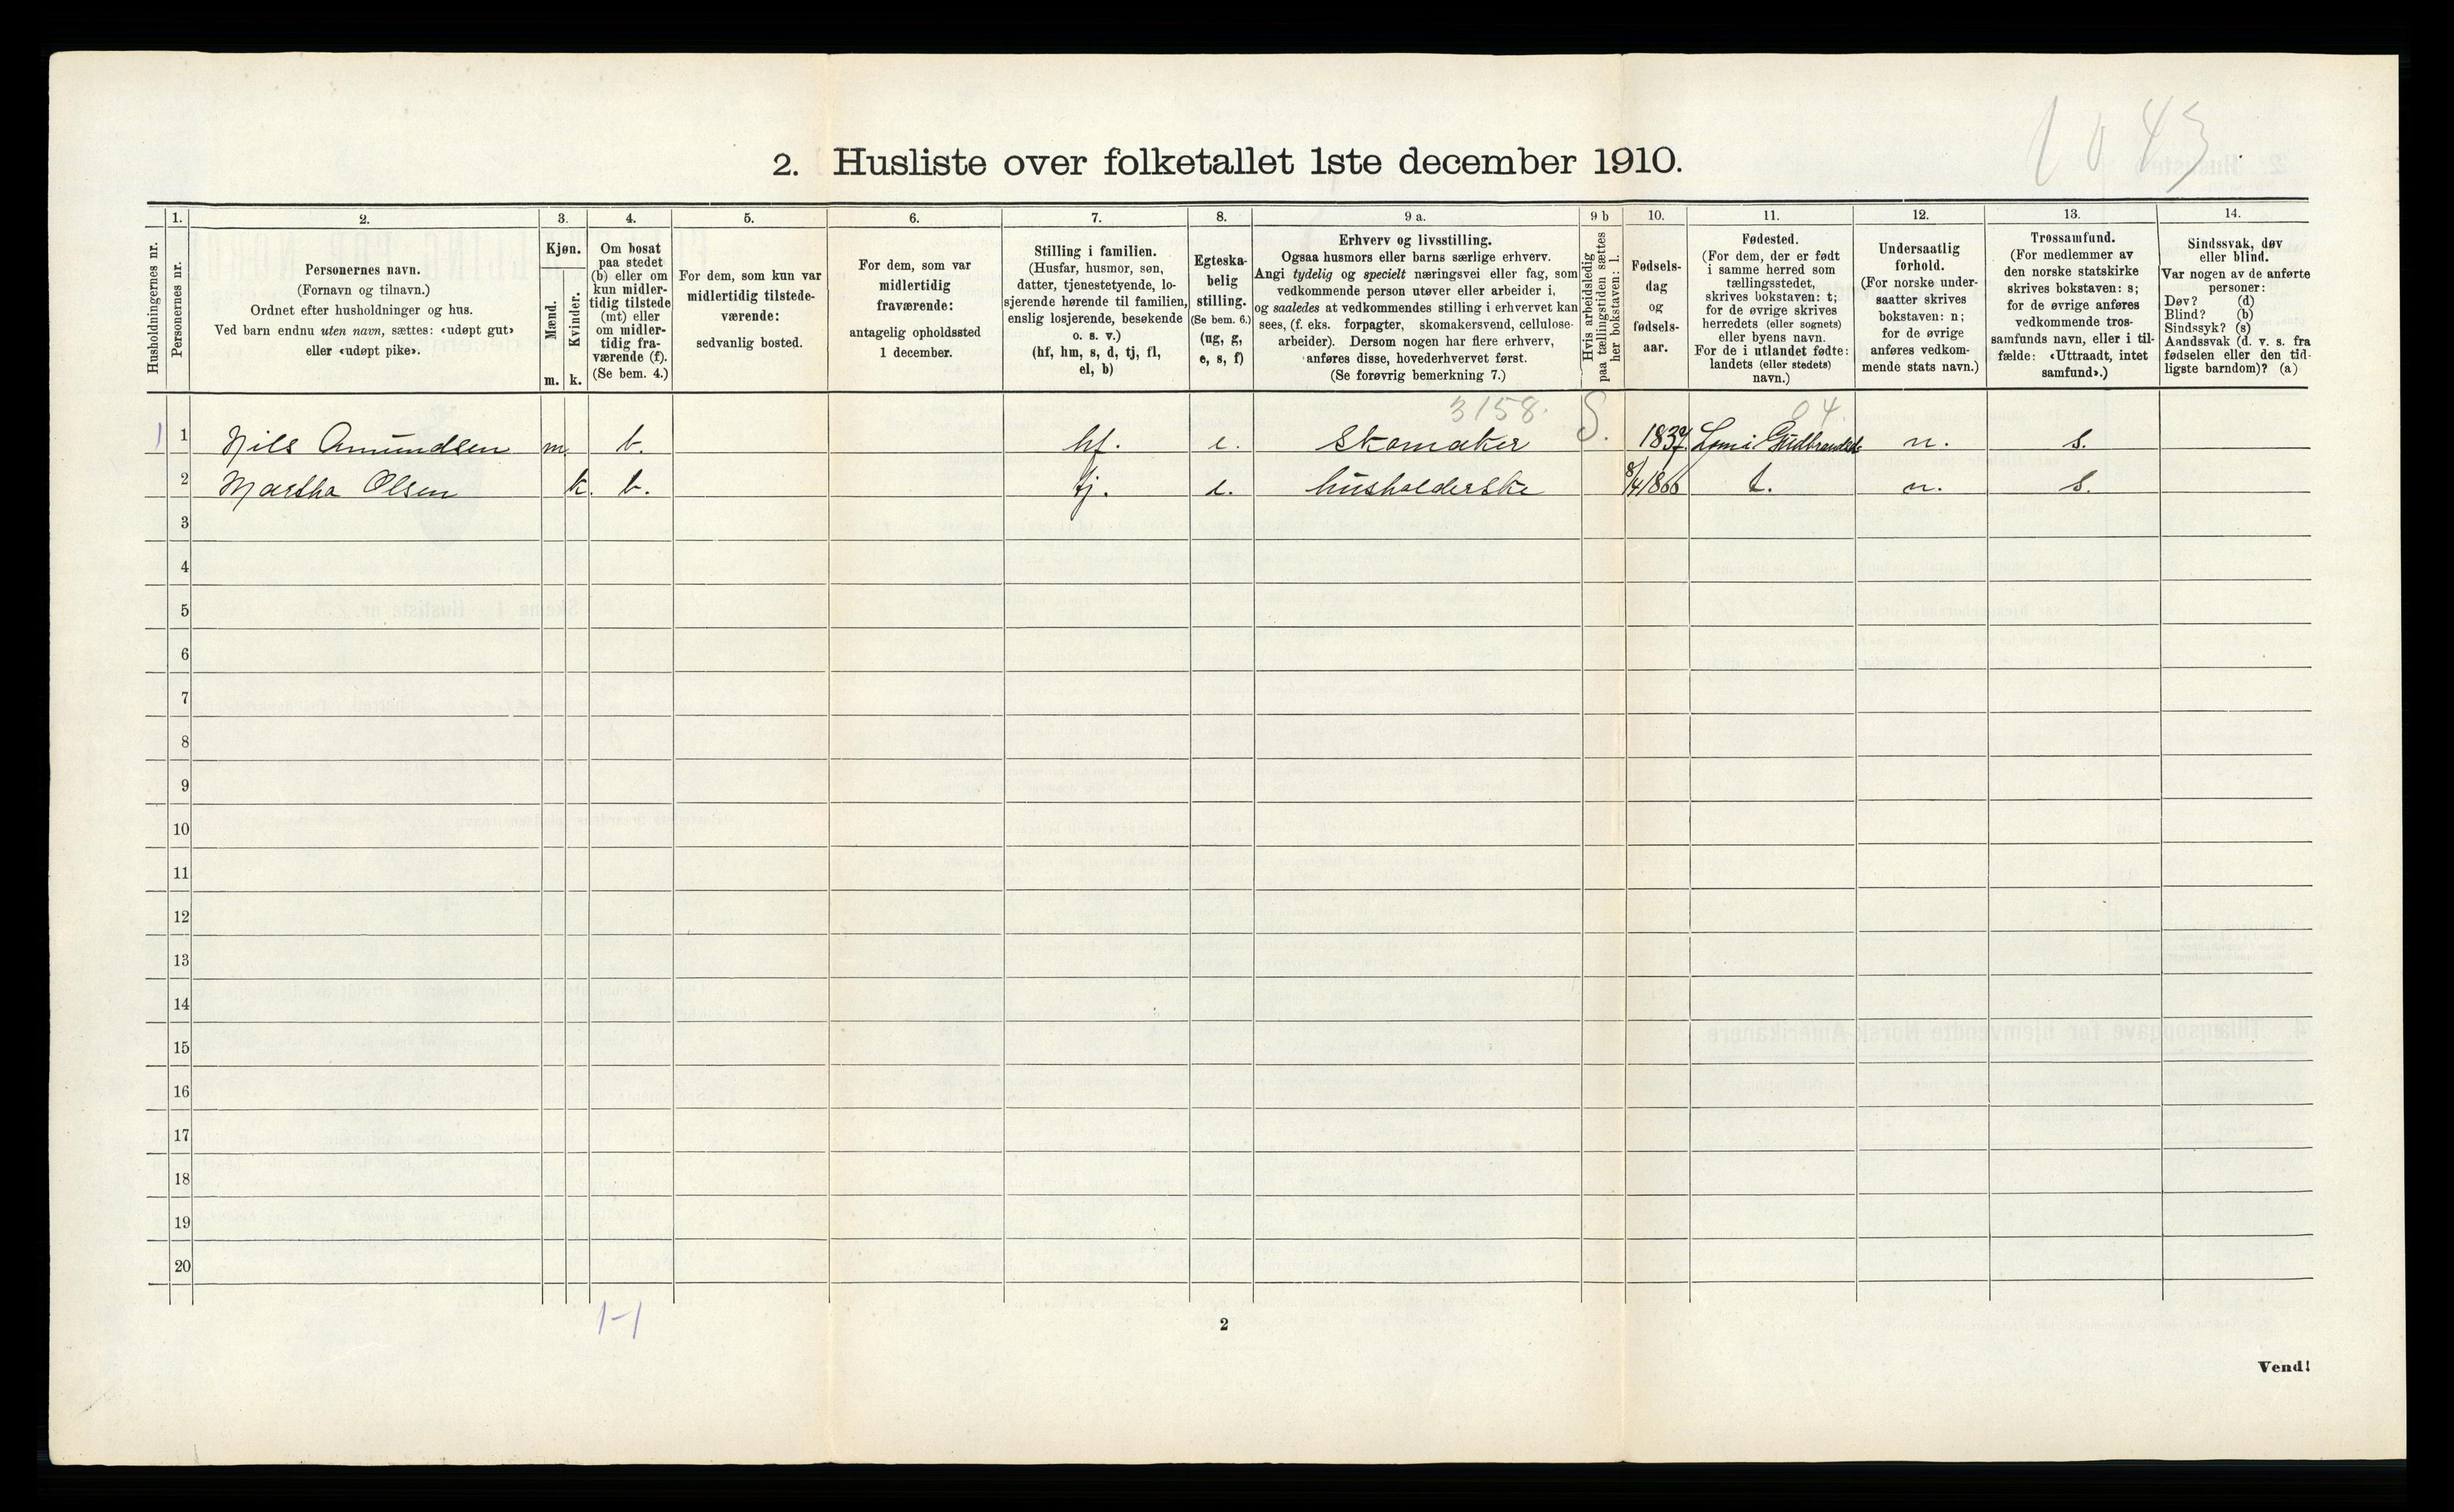 1043
2. Husliste over folketallet 1ste december 1910.
Husholdningernes nr.
1. Personernes nr.
2. Personernes navn.
(Fornavn og tilnavn.)
Ordnet efter husholdninger og hus.
Ved barn endnu uten navn, sættes: «udøpt gut»
eller «udøpt pike».
3. Kjøn.
Mænd. m.
Kvinder. k.
4. Om bosat
paa stedet
(b) eller om
kun midler-
tidig tilstede
(mt) eller
om midler-
tidig fra-
værende (f).
(Se bem. 4.)
5. For dem, som kun var
midlertidig tilstede-
værende:
sedvanlig bosted.
6. For dem, som var
midlertidig
fraværende:
antagelig opholdssted
1 december.
7. Stilling i familien.
(Husfar, husmor, søn,
datter, tjenestetyende, lo-
sjerende hørende til familien,
enslig losjerende, besøkende
o. s. v.)
(hf, hm, s, d, tj, fl,
el, b)
8. Egteska-
belig
stilling.
(Se bem. 6.)
(ug, g,
e, s, f)
9 a. Erhverv og livsstilling.
Ogsaa husmors eller barns særlige erhverv.
Angi tydelig og specielt næringsvei eller fag, som
vedkommende person utøver eller arbeider i,
og saaledes at vedkommendes stilling i erhvervet kan
sees, (f. eks. forpagter, skomakersvend, cellulose-
arbeider). Dersom nogen har flere erhverv,
anføres disse, hovederhvervet først.
(Se forøvrig bemerkning 7.)
9 b Hvis arbeidsledig
paa tællingstiden sættes
her bokstaven: l.
10. Fødsels-
dag
og
fødsels-
aar.
11. Fødested.
(For dem, der er født
i samme herred som
tællingsstedet,
skrives bokstaven: t;
for de øvrige skrives
herredets (eller sognets)
eller byens navn.
For de i utlandet fødte:
landets (eller stedets)
navn.)
12. Undersaatlig
forhold.
(For norske under-
saatter skrives
bokstaven: n;
for de øvrige
anføres vedkom-
mende stats navn.)
13. Trossamfund.
(For medlemmer av
den norske statskirke
skrives bokstaven: s;
for de øvrige anføres
vedkommende tros-
samfunds navn, eller i til-
fælde: «Uttraadt, intet
samfund».)
14. Sindssvak, døv
eller blind.
Var nogen av de anførte
personer:
Døv? (d)
Blind? (b)
Sindssyk? (s)
Aandssvak (d. v. s. fra
fødselen eller den tid-
ligste barndom)? (a)
3158. S. 04.
1 1 Nils Amundsen m. b. hf. e. Skomaker 1837 Lom i Gudbrandsd. n. s.
2 Martha Olsen k. b. tj. e. husholderske 8/4 1866 t. n. s.
3
4
5
6
7
8
9
10
11
12
13
14
15
16
17
18
19
20
1-1
2
Vend!